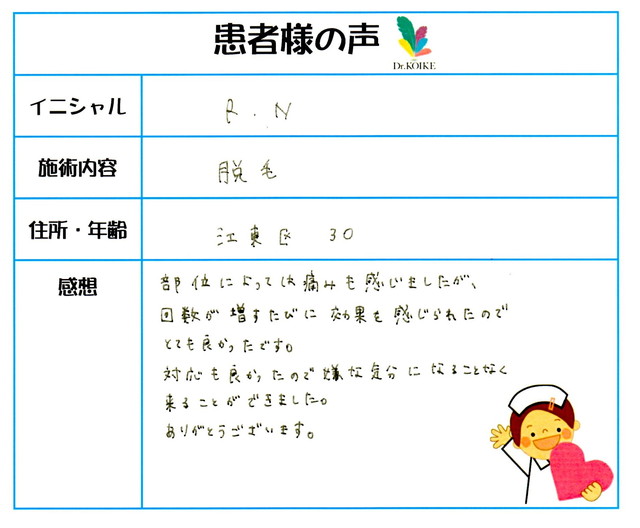 患者様の声
Dr.KOIKE
イニシャル
R.N
施術内容
脱毛
住所・年齢
江東区 30
感想
部位によっては痛みも感じましたが、
回数が増すたびに効果も感じられたので
とても良かったです。
対応も良かったので嫌な気分になることなく
来ることができました。
ありがとうございます。